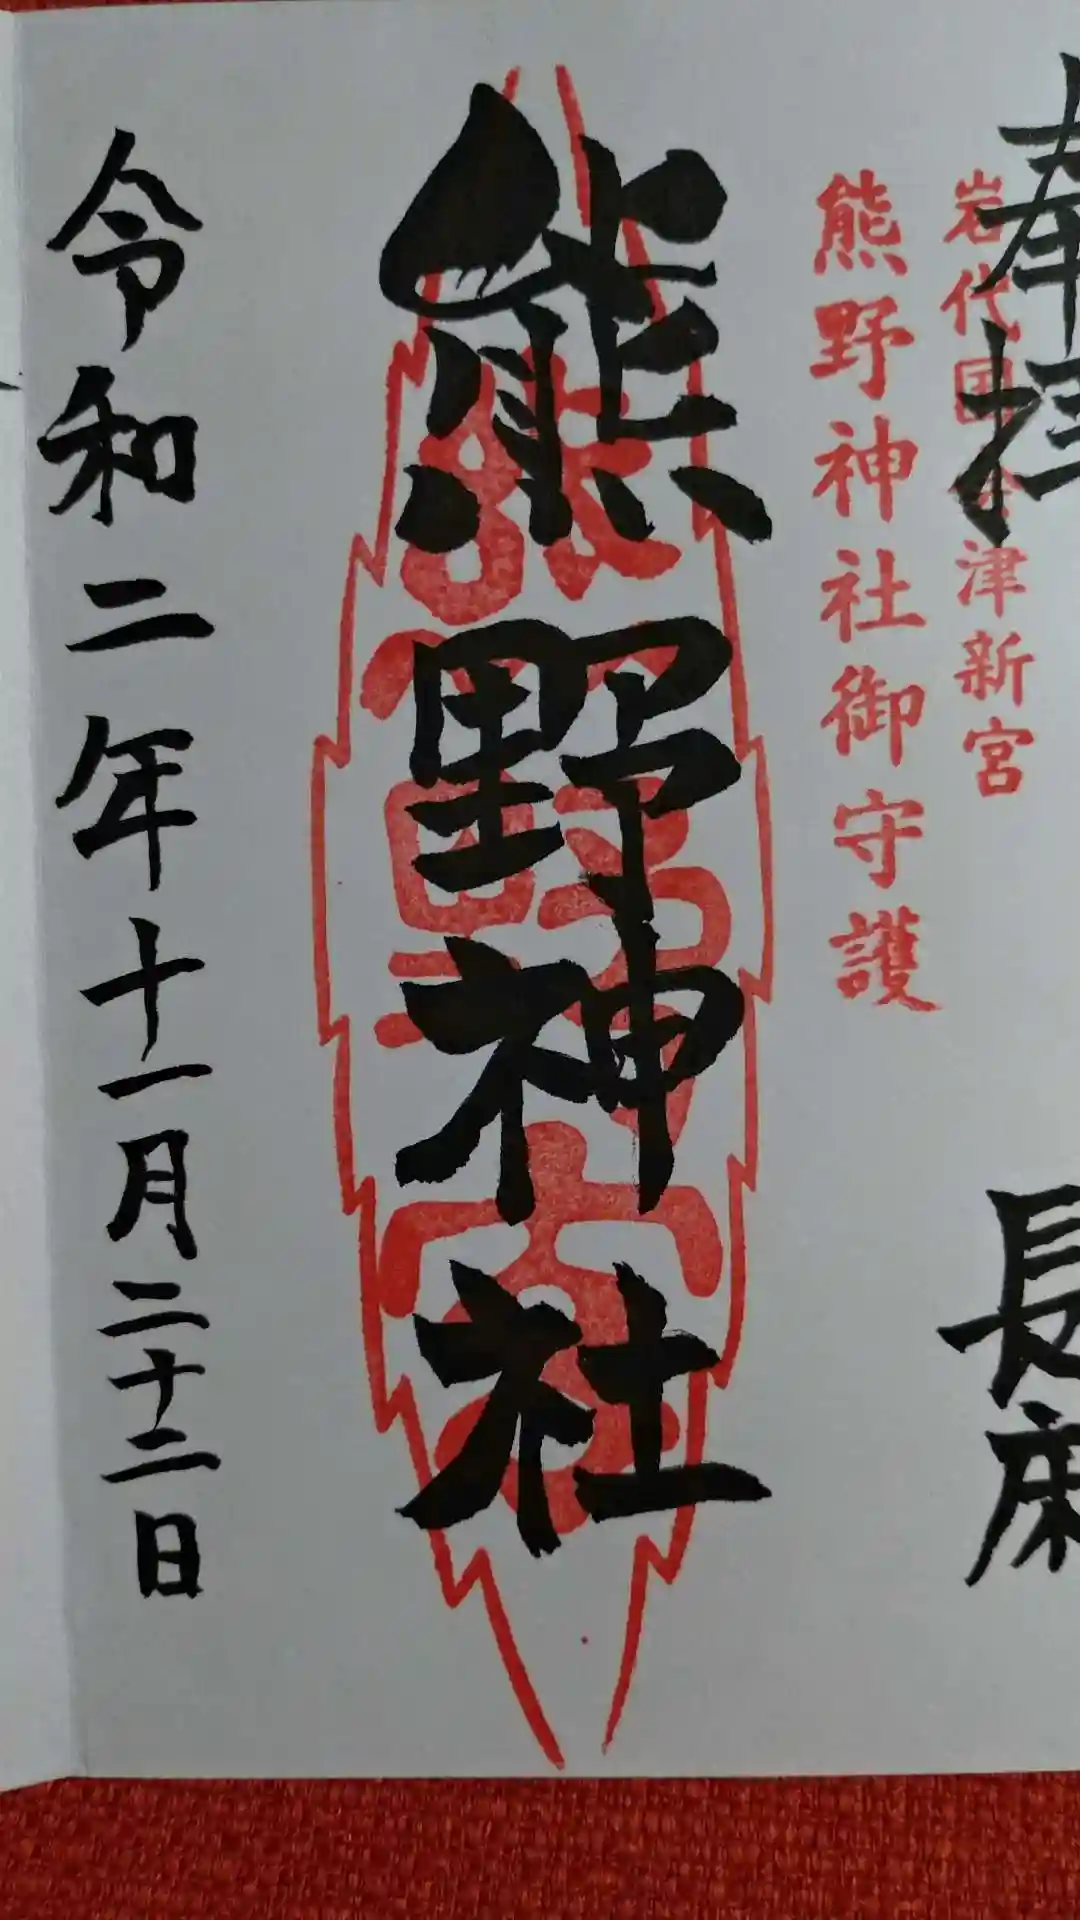 奉拝
長床
岩代国会津新宮
熊野神社御守護
熊野神社
令和二年十一月二十二日